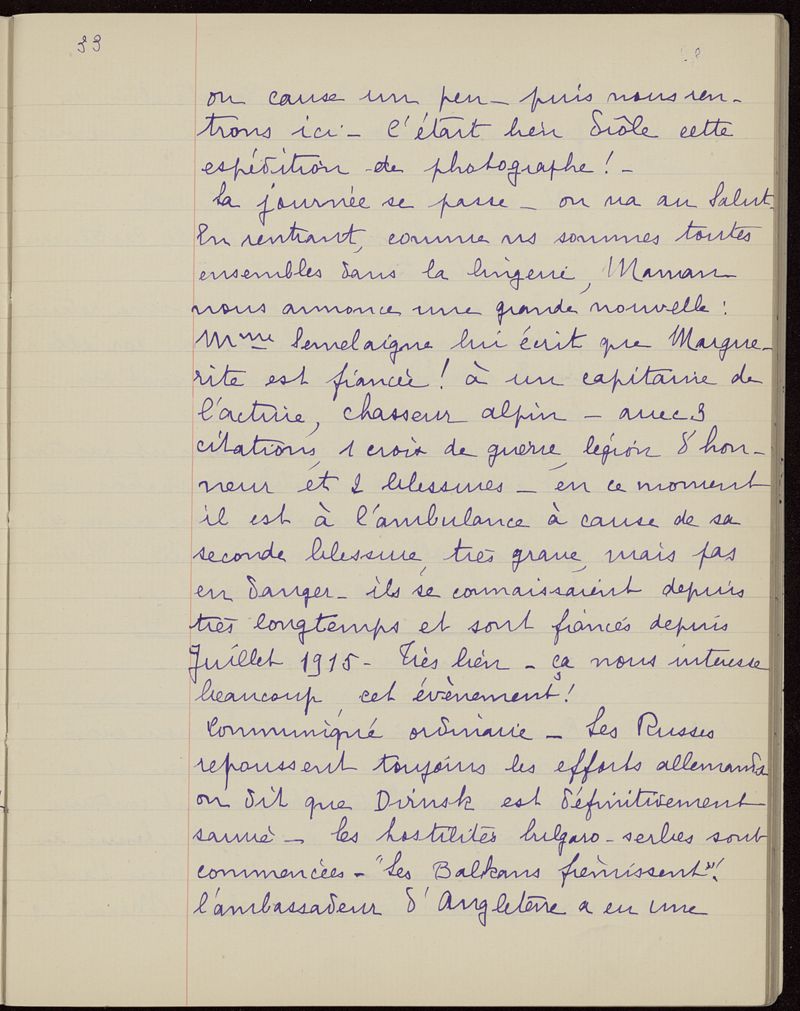 33
on cause un peu – puis nous ren-
trons ici – C'était bien drôle cette
espédition de photographe ! –
La journée se passe – on va au Salut.
En rentrant, comme ns sommes toutes
ensembles dans la lingerie, Maman
nous annonce une grande nouvelle :
Mme Semelaigne lui écrit que Margue-
rite est fiancée ! à un capitaine de
l'active, chasseur alpin – avec 3
citations, 1 croix de guerre, légion d'hon-
neur et 2 blessures – en ce moment
il est à l'ambulance à cause de sa
seconde blessure, très grave, mais pas
en danger – ils se connaissaient depuis
très longtemps et sont fiancés depuis
Juillet 1915 – Très bien – ça nous intéresse
beaucoup, cet évènement !
Communiqué ordinaire – Les Russes
repoussent toujours les efforts allemands
on dit que Dvinsk est définitivement
sauvé – les hostilités bulgaro-serbes sont
commencées – "Les Balkans frémissent" !
l'ambassadeur d'Angleterre a eu une